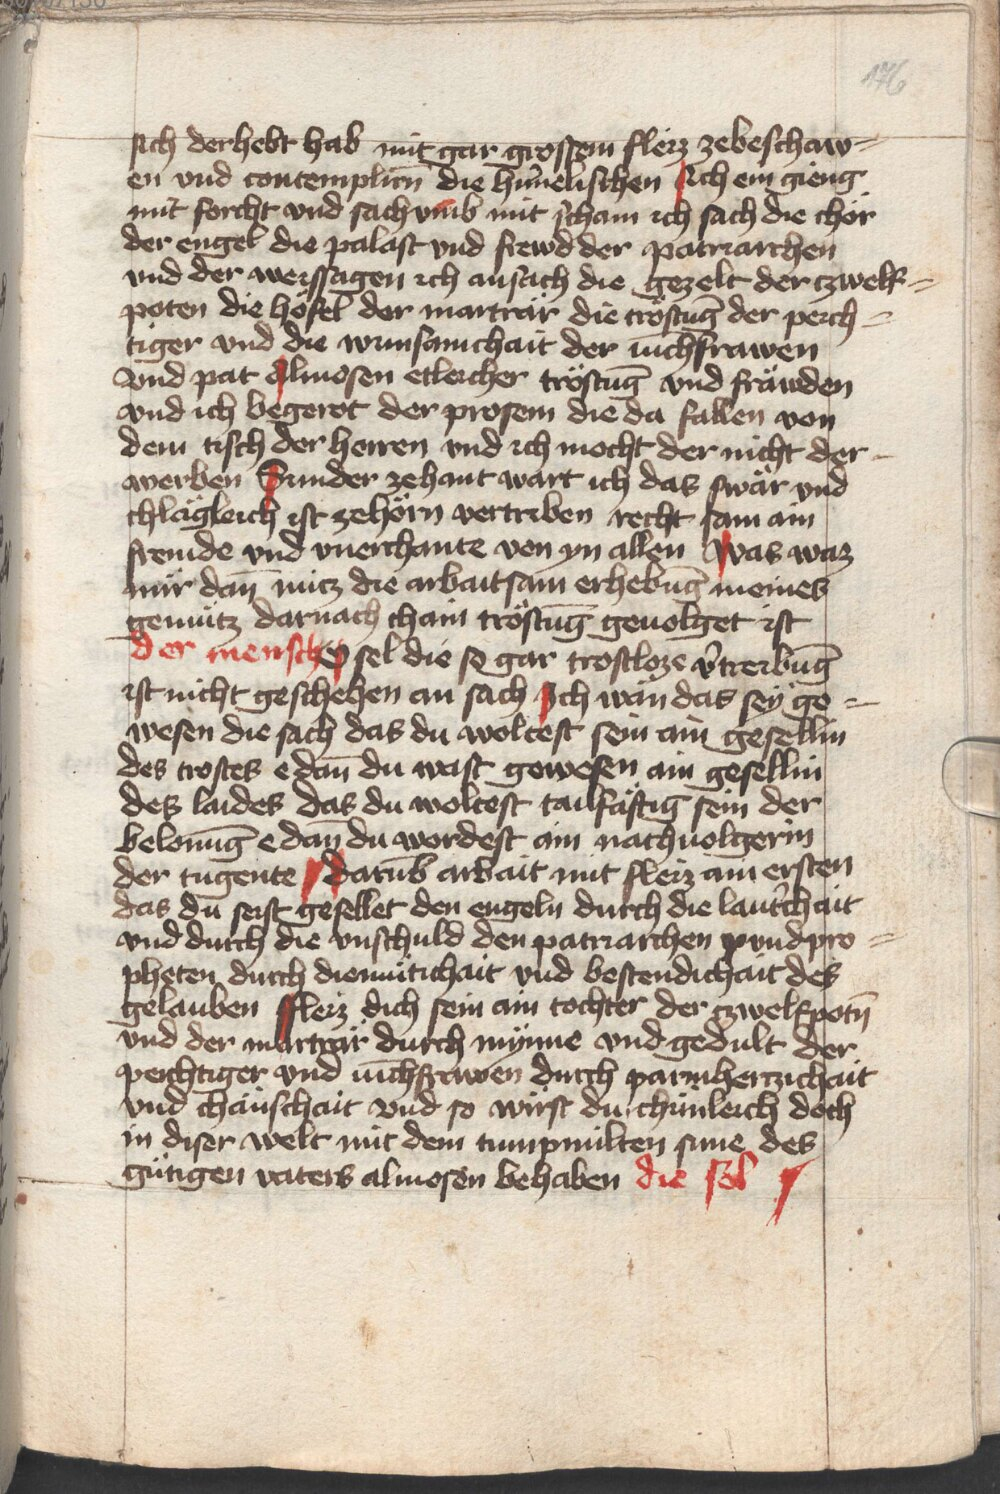 176
sich derhebt hab mit gar grossem fleiz zebeschaw=
en vnd contemplirn̄ die him̄elischen Ich ein gieng
mit forcht vnd sach vmb mit scham ich sach die chör
der engel die palast vnd frewd der patriarchen
vnd der weissagen ich ansach die gezelt der czwelf=
poten die höfel der marträr die tröstūg der peich=
tiger vnd die wunsamchait der iūchfrawen
vnd pat almosen etleicher tröstūg vnd fräwden
vnd ich begerot der prosem die da fallen von
dem tisch der herren vnd ich mocht der nicht der=
werben Sunder zehant wart ich das swär vnd
chlägleich ist zehörn vertriben recht sam ain
fremde vnd vnerchante von yn allen Was waz
mir dan̄ nütz die arbaitsam erhebūg meines
gemütz darnach chain tröstūg geuolget ist
der mensch O sel die so gar trostloze v̓treibūg
ist nicht geschehen an sach Ich wän das sey ge=
wesen die sach das du woltest sein ain gesellin
des trostes e dan̄ du wast gewesen ain gesellin
des laides das du woltest tailhäftig sein der
belonūg e dan̄ du wordest ain nachuolgerin
der tugente darūb arbait mit fleiz am ersten
das du seist gesellet den engeln durch die laut̓chait
vnd durch die vnschuld den patriarchen vnd pro=
pheten durch diemütichait vnd bestendichait des
gelauben fleiz dich sein ain tochter der czwelfpotn̄
vnd der marträr durch mynne vnd gedult der
peichtiger vnd iūchfrawen durch parmherczichait
vnd chäuschait vnd so wirst du chünleich doch
in diser welt mit dem tumpmilten sune des
gütigen vaters almosen behaben die sel